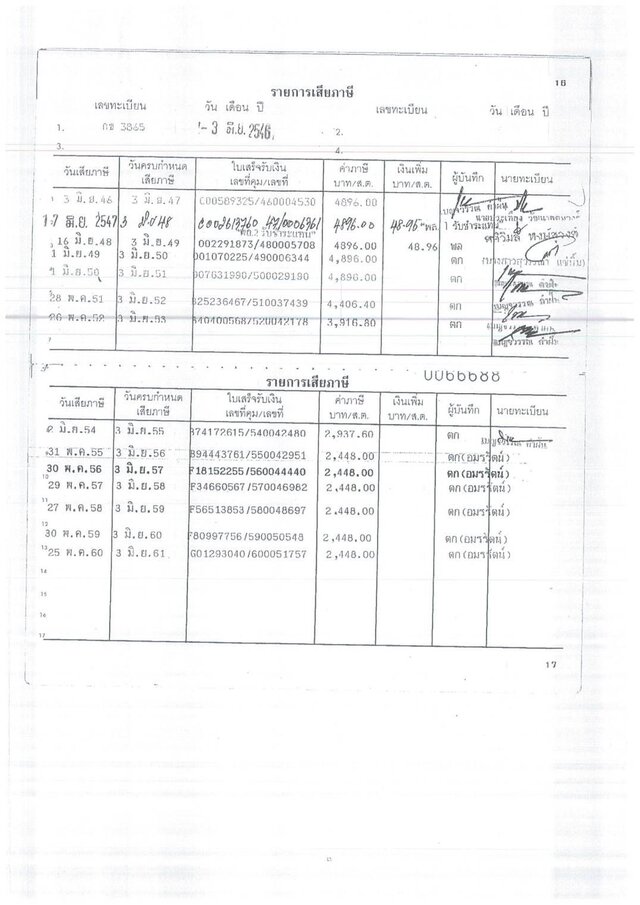 16
รายการเสียภาษี
เลขทะเบียน วัน เดือน ปี เลขทะเบียน วัน เดือน ปี
1. กข 3865 - 3 มิ.ย. 2546 2.
3. 4.
วันเสียภาษี วันครบกำหนดเสียภาษี ใบเสร็จรับเงิน เลขที่คุม/เลขที่ ค่าภาษี บาท/ส.ต. เงินเพิ่ม บาท/ส.ต. ผู้บันทึก นายทะเบียน
3 มิ.ย.46 3 มิ.ย.47 C00589325/460004530 4896.00
17 มิ.ย. 2547 3 มิ.ย 48 4896.00 48.96
16 มิ.ย.48 3 มิ.ย.49 002291873/480005708 4896.00 48.96 พล
1 มิ.ย.49 3 มิ.ย.50 001070225/490006344 4,896.00 ตก
มิ.ย.50 3 มิ.ย.51 007631990/500029190 4,896.00 ตก
28 พ.ค.51 3 มิ.ย.52 B25236467/510037439 4,406.40 ตก
26 พ.ค.52 3 มิ.ย.53 B40400568/520042178 3,916.80 ตก
0066688
รายการเสียภาษี
วันเสียภาษี วันครบกำหนดเสียภาษี ใบเสร็จรับเงิน เลขที่คุม/เลขที่ ค่าภาษี บาท/ส.ต. เงินเพิ่ม บาท/ส.ต. ผู้บันทึก นายทะเบียน
2 มิ.ย.54 3 มิ.ย.55 B74172615/540042480 2,937.60 ตก
31 พ.ค.55 3 มิ.ย.56 B94443761/550042951 2,448.00 ตก(อมรรัตน์)
30 พ.ค.56 3 มิ.ย.57 F18152255/560044440 2,448.00 ตก(อมรรัตน์)
10 29 พ.ค.57 3 มิ.ย.58 F34660567/570046982 2,448.00 ตก(อมรรัตน์)
11 27 พ.ค.58 3 มิ.ย.59 F56513853/580048697 2,448.00 ตก(อมรรัตน์)
12 30 พ.ค.59 3 มิ.ย.60 F80997756/590050548 2,448.00 ตก(อมรรัตน์)
13 25 พ.ค.60 3 มิ.ย.61 G01293040/600051757 2,448.00 ตก(อมรรัตน์)
14
15
16
17
17